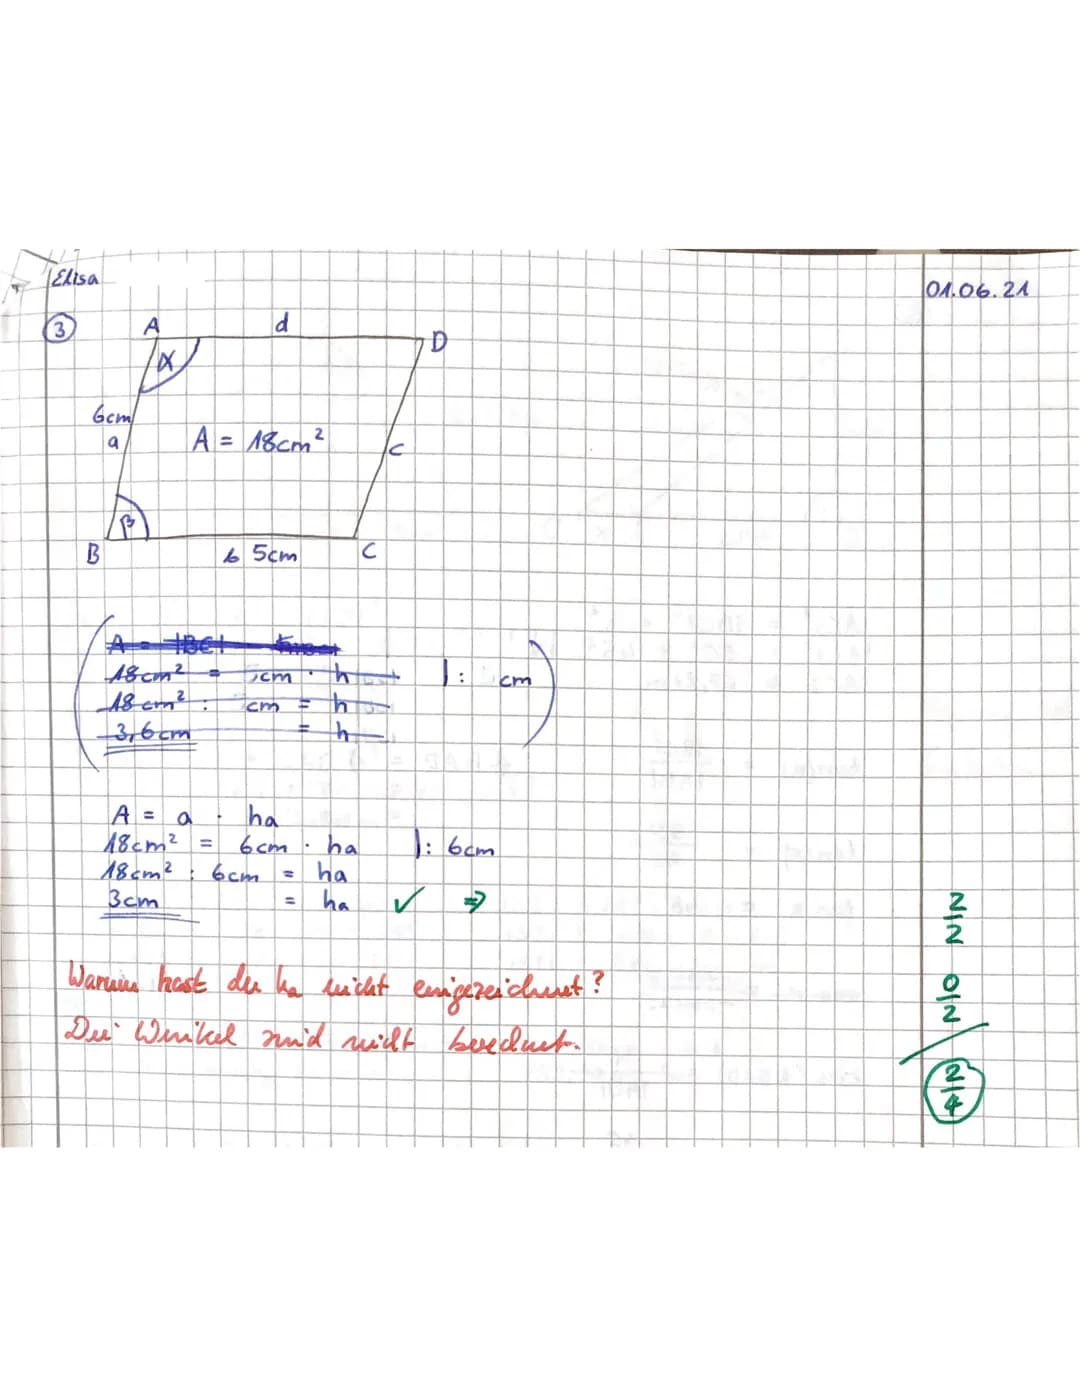 Elisa
01.06.21
3
A d D
α
6cm
a
A = 18cm² c
β
B b 5cm C
18cm² = 5cm · h |: cm
18cm² : cm = h
3,6cm = h
A = a · ha
18cm² = 6cm · ha |: 6cm
18cm² : 6cm = ha
3cm = ha ✓ ⇒
2/2
Warum hast du ha nicht eingezeichnet?
0/2
Die Winkel sind nicht berechnet.
2/4